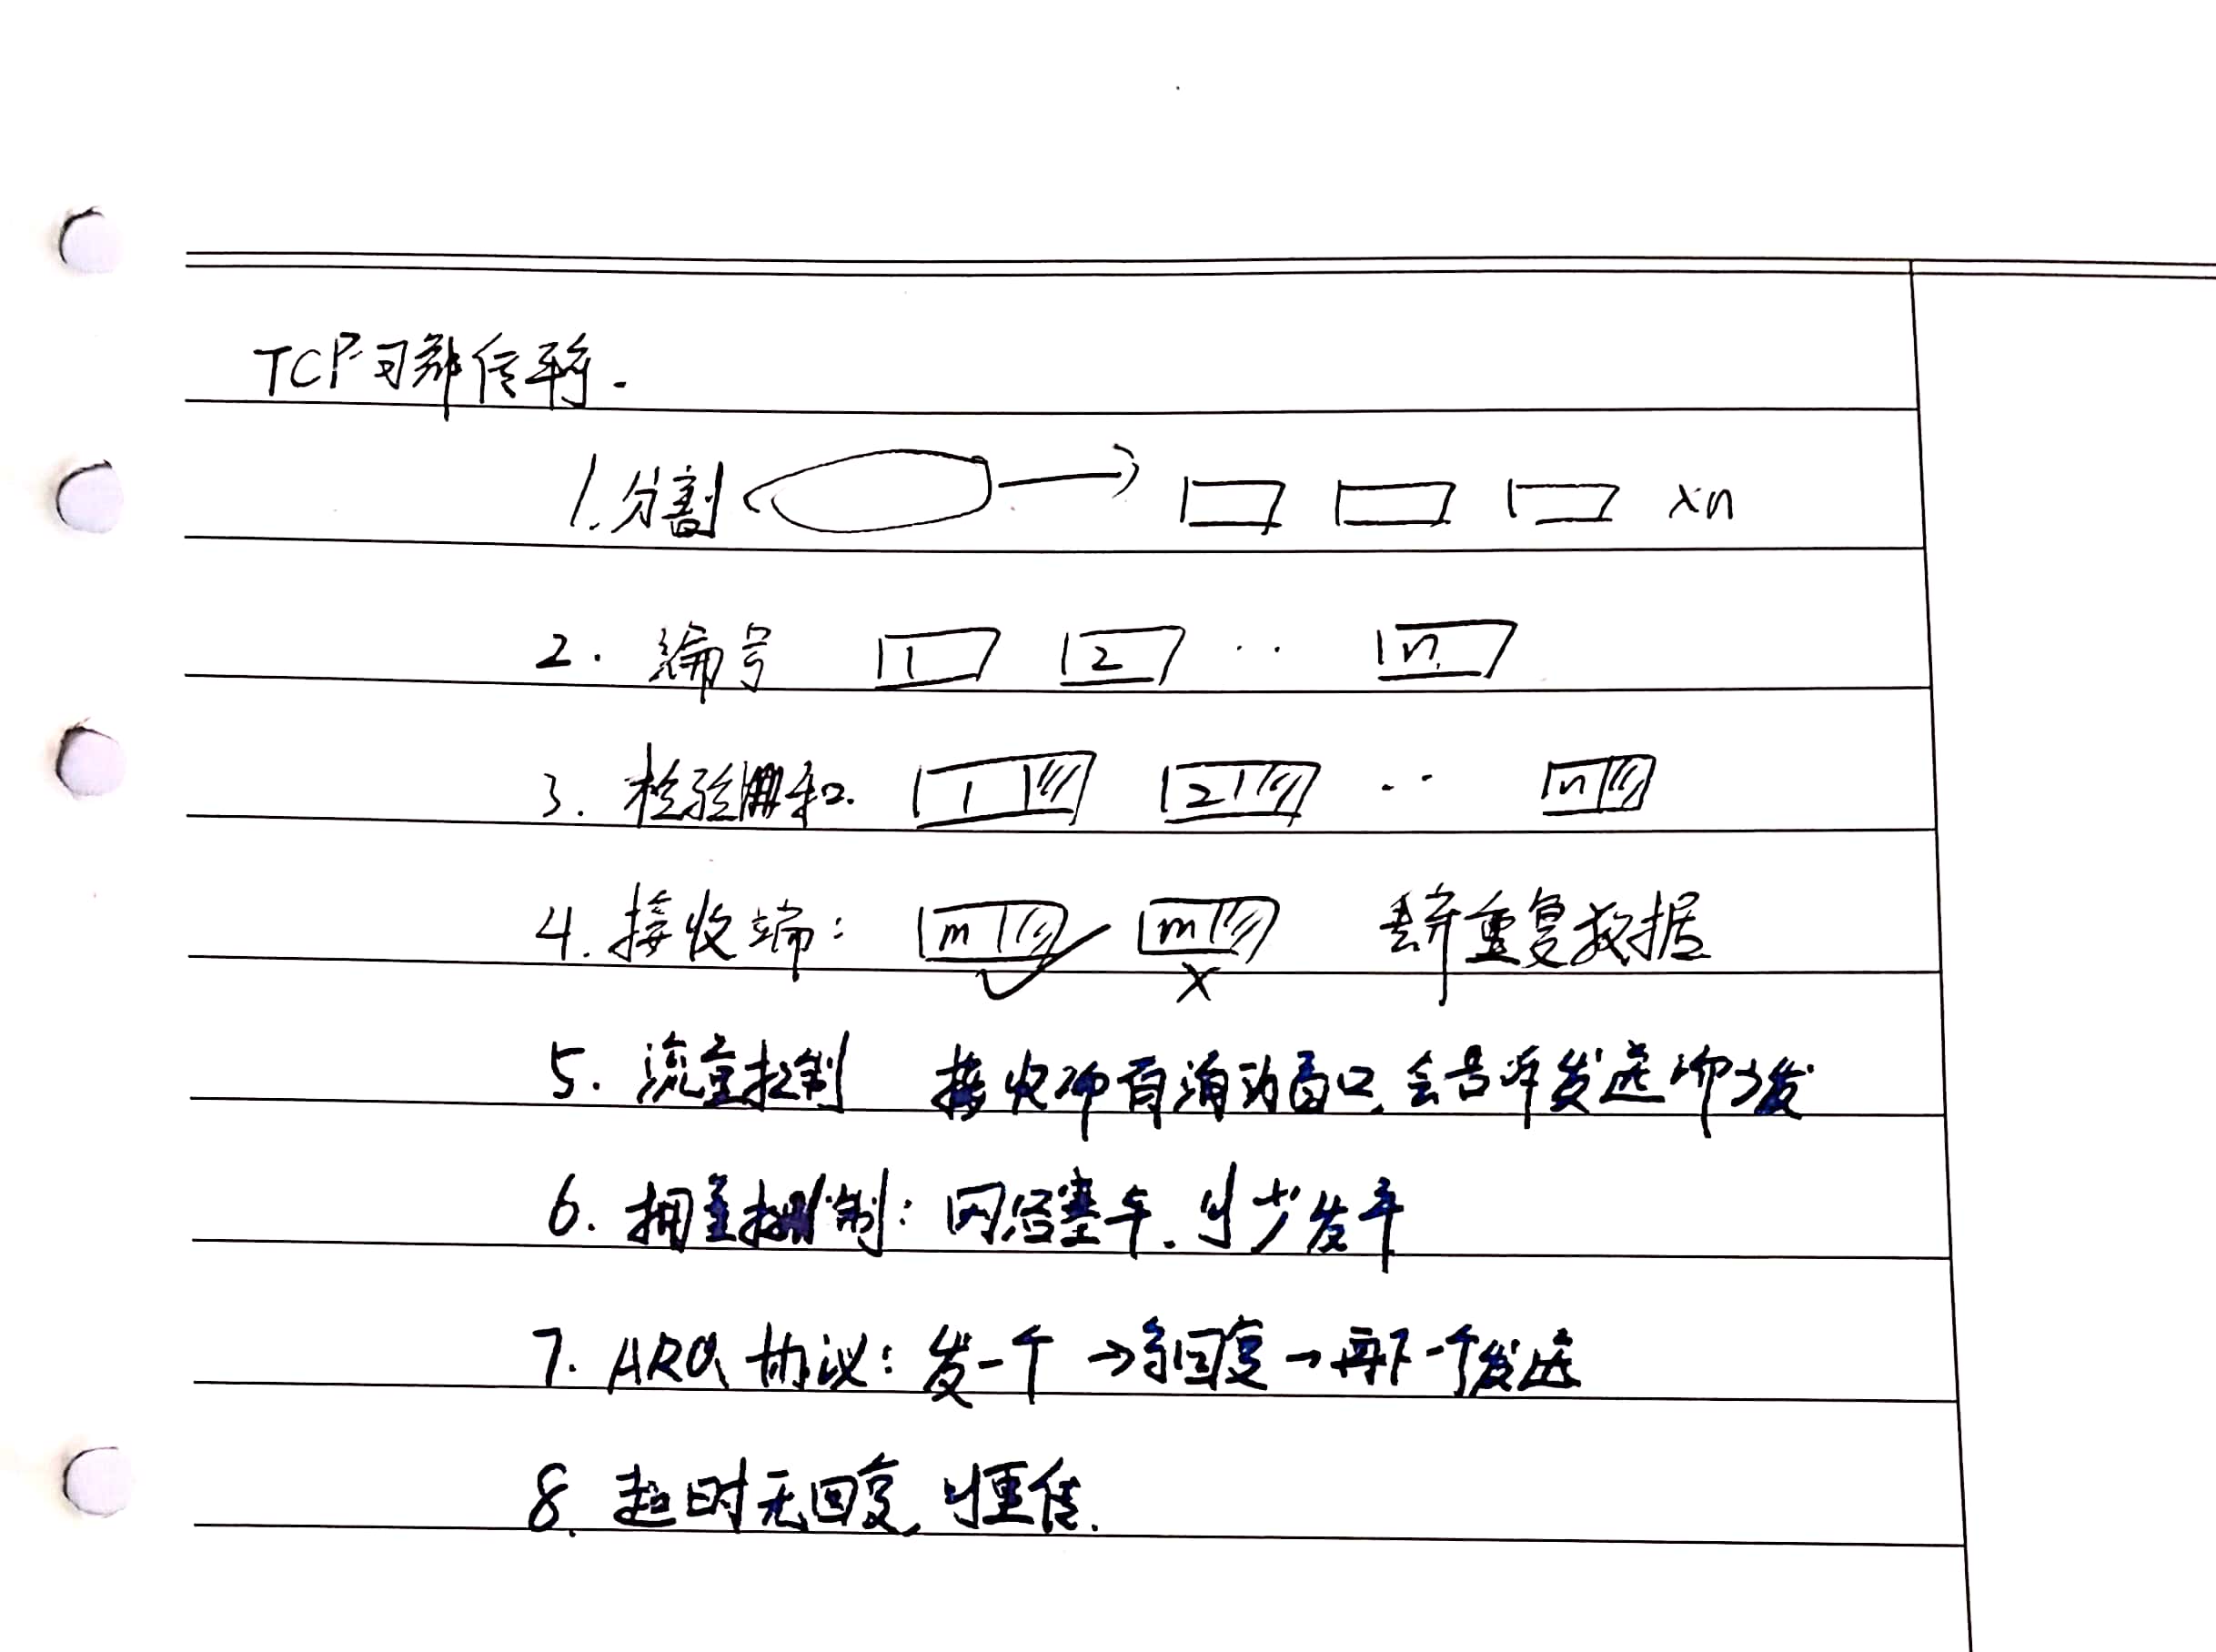 TCP可靠传输.
1.分割 xn
2. 编号 1 2 ·· n
3. 检验和. 1 2 ·· n
4.接收端: m m 丢弃重复数据
5. 流量控制 接收端有滑动窗口,会告诉发送端少发
6. 拥塞控制: 网络塞车.则少发车
7. ARQ 协议: 发一个→等回复→再下一个发送
8. 超时无回复,则重传.